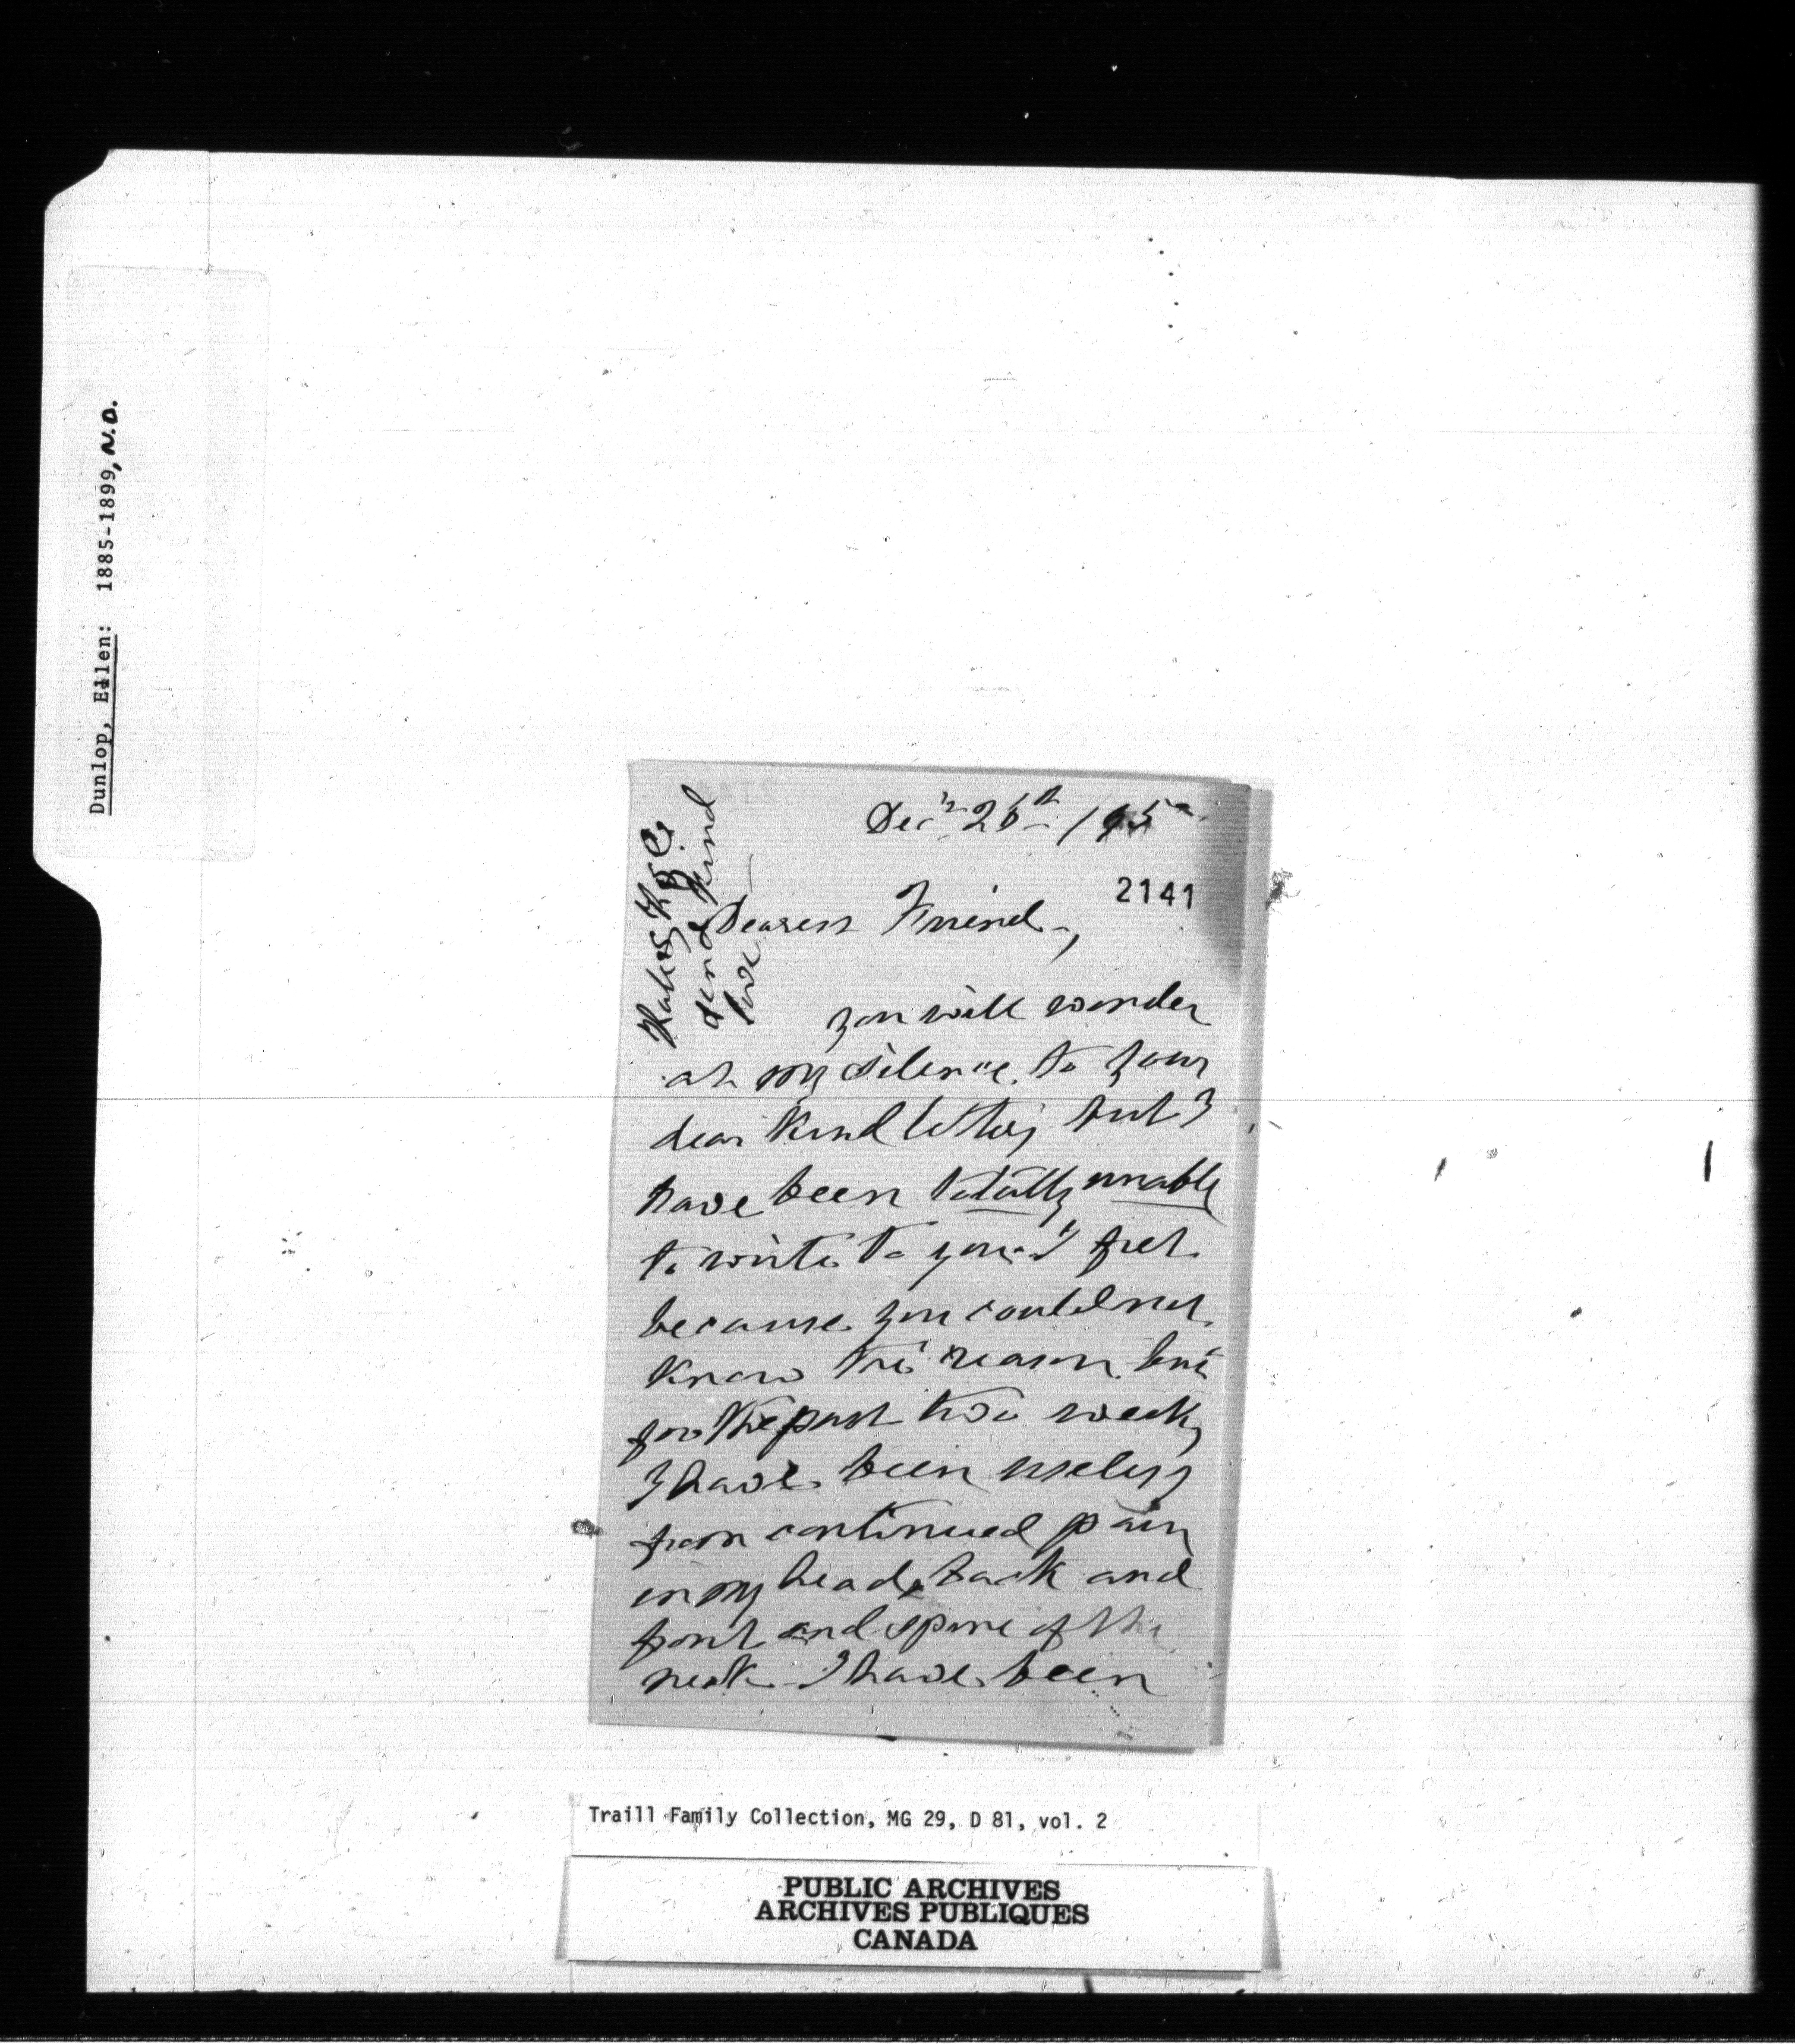 Dunlop, Ellen: 1885-1899, N.D.
Decr 26th / 95
2141
send kind
love
Dearest Friend -,
you will wonder
at my silence to your
dear kind letter, but I
have been totally unable
to write to you - I fret
because you could not
know the reason, but
for the past two weeks
I have been useless
from continued pain
in my head, back and
front and spine of the
neck - I have been
Traill Family Collection, MG 29, D 81, vol. 2
PUBLIC ARCHIVES
ARCHIVES PUBLIQUES
CANADA